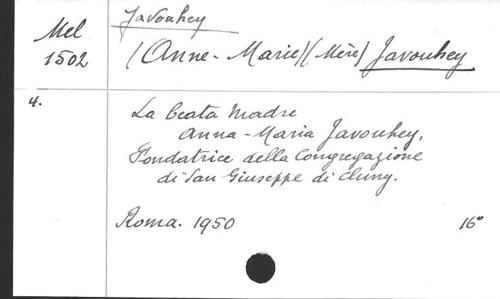 Javouhey
Mel
1502
(Anne-Marie)(Mère) Javouhey
4.
La beata Madre
Anna-Maria Javouhey,
Fondatrice della Congregazione
di San Giuseppe di Cluny.
Roma. 1950
16°